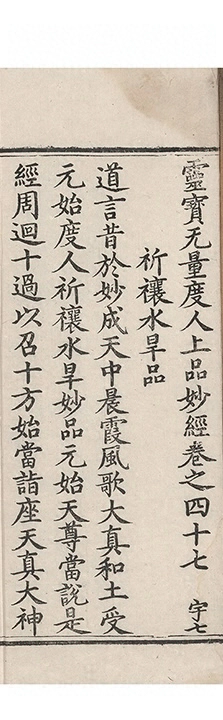 靈寶无量度人上品妙經卷之四十七 宇七
祈禳水旱品
道言昔於妙成天中晨霞風歌大真和土受
元始度人祈禳水旱妙品元始天尊當說是
經周迴十過以召十方始當詣座天真大神